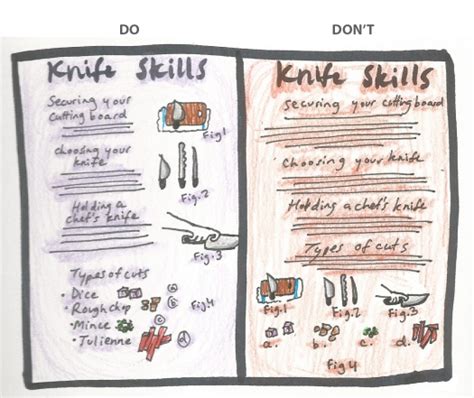 DO
Knife Skills
Securing your
Cutting board
Fig1
Choosing your
knife
Fig.2
Holding a
chef's knife
Fig.3
Types of cuts
• Dice a
• Rough chop b
• Mince c
• Julienne d
Fig4
DON'T
Knife Skills
Securing your cutting board
Choosing your knife
Holding a chef's knife
Types of cuts
Fig.1 Fig.2 Fig.3
a. b. c. d.
Fig 4